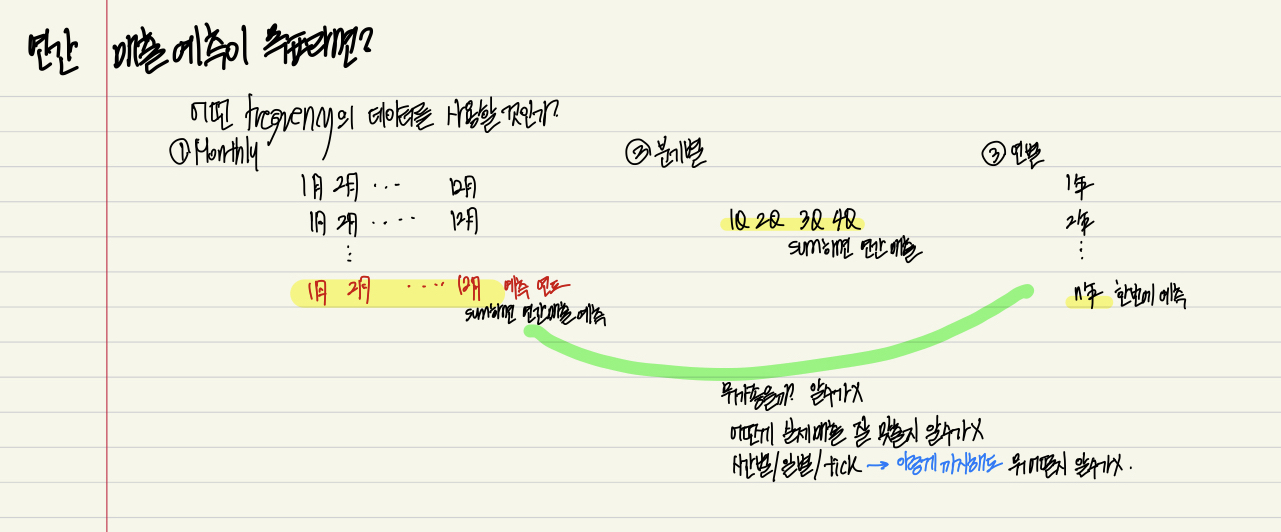 연간 매출 예측이 목표라면?
어떤 frequency의 데이터를 사용할 것인가?
① Monthly
1月 2月 ... 12月
1月 2月 .... 12月
⋮
1月 2月 .... 12月 예측 연도
sum하면 연간매출 예측
② 분기별
1Q 2Q 3Q 4Q
sum하면 연간매출
③ 연별
1年
2年
⋮
n年 한번에 예측
뭐가좋을까? 알수가X
어떤게 실제매출 잘 맞출지 알수가X
시간별/일별/tick → 이렇게 까지해도 뭐 어떤지 알수가X.